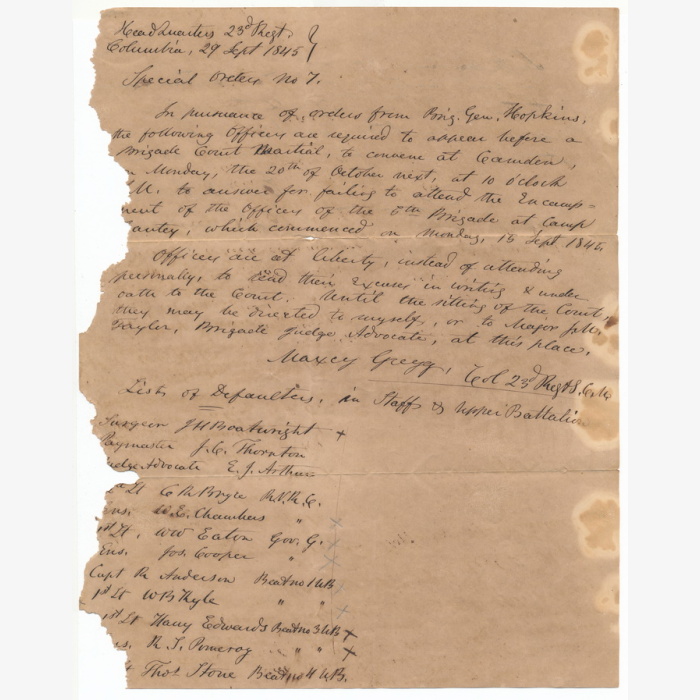 Head Quarters 23d Regt.
Columbia, 29 Sept 1845
Special Orders No 7.
In pursuance of orders from Brig. Gen. Hopkins,
the following Officers are required to appear before a
Brigade Court Martial, to convene at Camden,
Monday, the 20th of October next, at 10 o'clock
M. to answer for failing to attend the Encamp=
ment of the Officers of the Brigade at Camp
which commenced on Monday, 15 Sept 1845.
Officers are at liberty, instead of attending
personally, to send their Excuses in writing & under
oath to the Court. Until the sitting of the Court,
they may be directed to myself, or to Major
Taylor, Brigade Judge Advocate, at this place.
Maxcy Gregg, Col 23d Regt S.C.M.
List of Defaulters, in Staff & Upper Battalion
Surgeon J H Boatwright x
Paymaster J. C. Thornton
Judge Advocate E. J. Arthur
Lt C R Bryce R.V.R.C.
Ens. W. E. Chambers "
1st Lt. W W Eaton Gov. G.
Ens. Jos. Cooper "
Capt R Anderson Beat no 1 U B
1st Lt W B Kyle " "
1st Lt Harry Edwards Beat no 3 U B x
R. S. Pomeroy " " x
Thos Stone Beat no 4 U B.